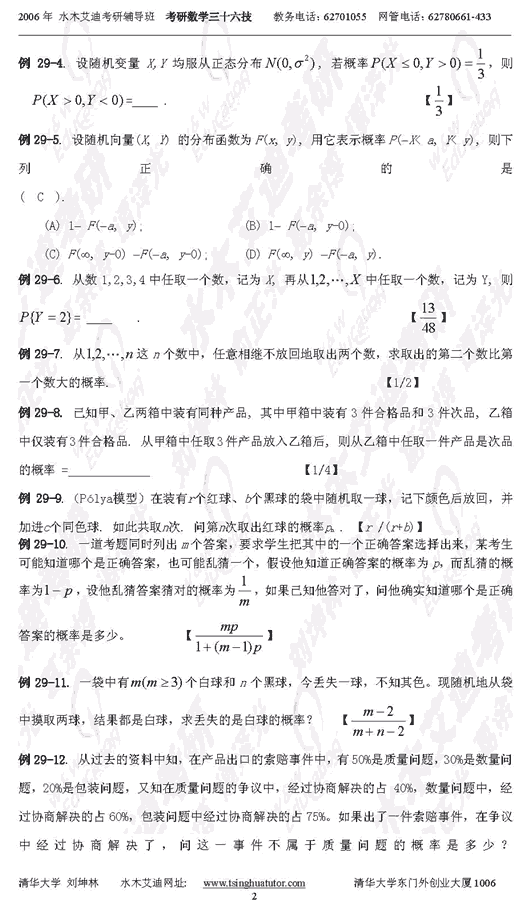 2006 年 水木艾迪考研辅导班 考研数学三十六技 教务电话：62701055 网管电话：62780661-433
例 29-4. 设随机变量 X, Y 均服从正态分布 N(0, σ²), 若概率 P(X ≤ 0, Y > 0) = 1/3, 则
P(X > 0, Y < 0) = ____ . 【1/3】
例 29-5. 设随机向量(X, Y) 的分布函数为 F(x, y), 用它表示概率 P(-X< a, Y< y), 则下
列 正 确 的 是
( C ).
(A) 1- F(-a, y); (B) 1- F(-a, y-0);
(C) F(∞, y-0) -F(-a, y-0); (D) F(∞, y) -F(-a, y).
例 29-6. 从数 1,2,3,4 中任取一个数，记为 X, 再从1,2,⋯,X 中任取一个数，记为 Y, 则
P{Y = 2} = ____ . 【13/48】
例 29-7. 从1,2,⋯,n 这 n 个数中，任意相继不放回地取出两个数，求取出的第二个数比第
一个数大的概率. 【1/2】
例 29-8. 己知甲、乙两箱中装有同种产品, 其中甲箱中装有 3 件合格品和 3 件次品, 乙箱
中仅装有3件合格品. 从甲箱中任取3件产品放入乙箱后, 则从乙箱中任取一件产品是次品
的概率 =____________ 【1/4】
例 29-9. (Pólya模型) 在装有r个红球、b个黑球的袋中随机取一球，记下颜色后放回，并
加进c个同色球. 如此共取n次. 问第n次取出红球的概率pₙ. 【r /(r+b)】
例 29-10. 一道考题同时列出 m个答案，要求学生把其中的一个正确答案选择出来，某考生
可能知道哪个是正确答案，也可能乱猜一个，假设他知道正确答案的概率为 p，而乱猜的概
率为1 − p，设他乱猜答案猜对的概率为 1/m，如果己知他答对了，问他确实知道哪个是正确
答案的概率是多少。 【mp/(1+(m−1)p)】
例 29-11. 一袋中有m(m ≥ 3)个白球和 n 个黑球，今丢失一球，不知其色。现随机地从袋
中摸取两球，结果都是白球，求丢失的是白球的概率？ 【(m−2)/(m+n−2)】
例 29-12. 从过去的资料中知，在产品出口的索赔事件中，有 50%是质量问题，30%是数量问
题，20%是包装问题，又知在质量问题的争议中，经过协商解决的占 40%，数量问题中，经
过协商解决的占 60%，包装问题中经过协商解决的占 75%。如果出了一件索赔事件，在争议
中 经 过 协 商 解 决 了 ， 问 这 一 事 件 不 属 于 质 量 问 题 的 概 率 是 多 少 ？
清华大学 刘坤林 水木艾迪网址： www.tsinghuatutor.com 清华大学东门外创业大厦 1006
2